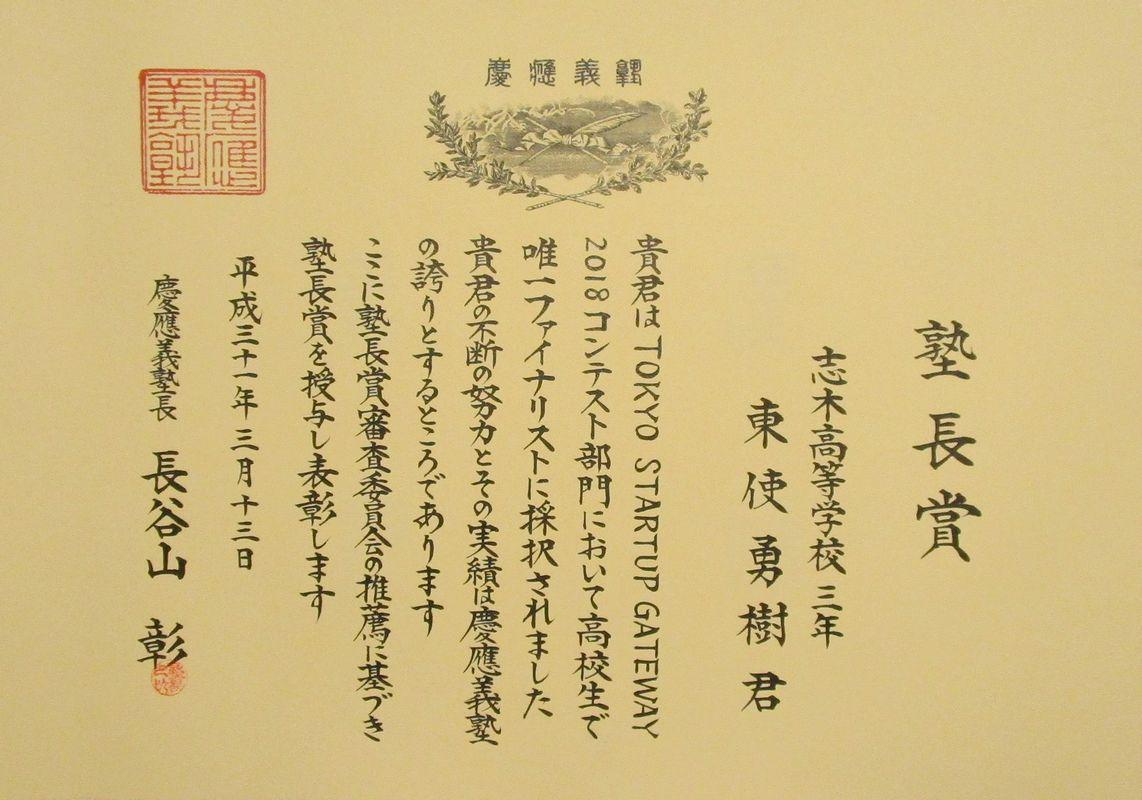 慶應義塾
塾長賞
志木高等学校 三年
東使勇樹君
貴君は TOKYO STARTUP GATEWAY
2018コンテスト部門において高校生で
唯一ファイナリストに採択されました
貴君の不断の努力とその実績は慶應義塾
の誇りとするところであります
ここに塾長賞審査委員会の推薦に基づき
塾長賞を授与し表彰します
平成三十一年 三月十三日
慶應義塾長 長谷山 彰
慶應
義塾